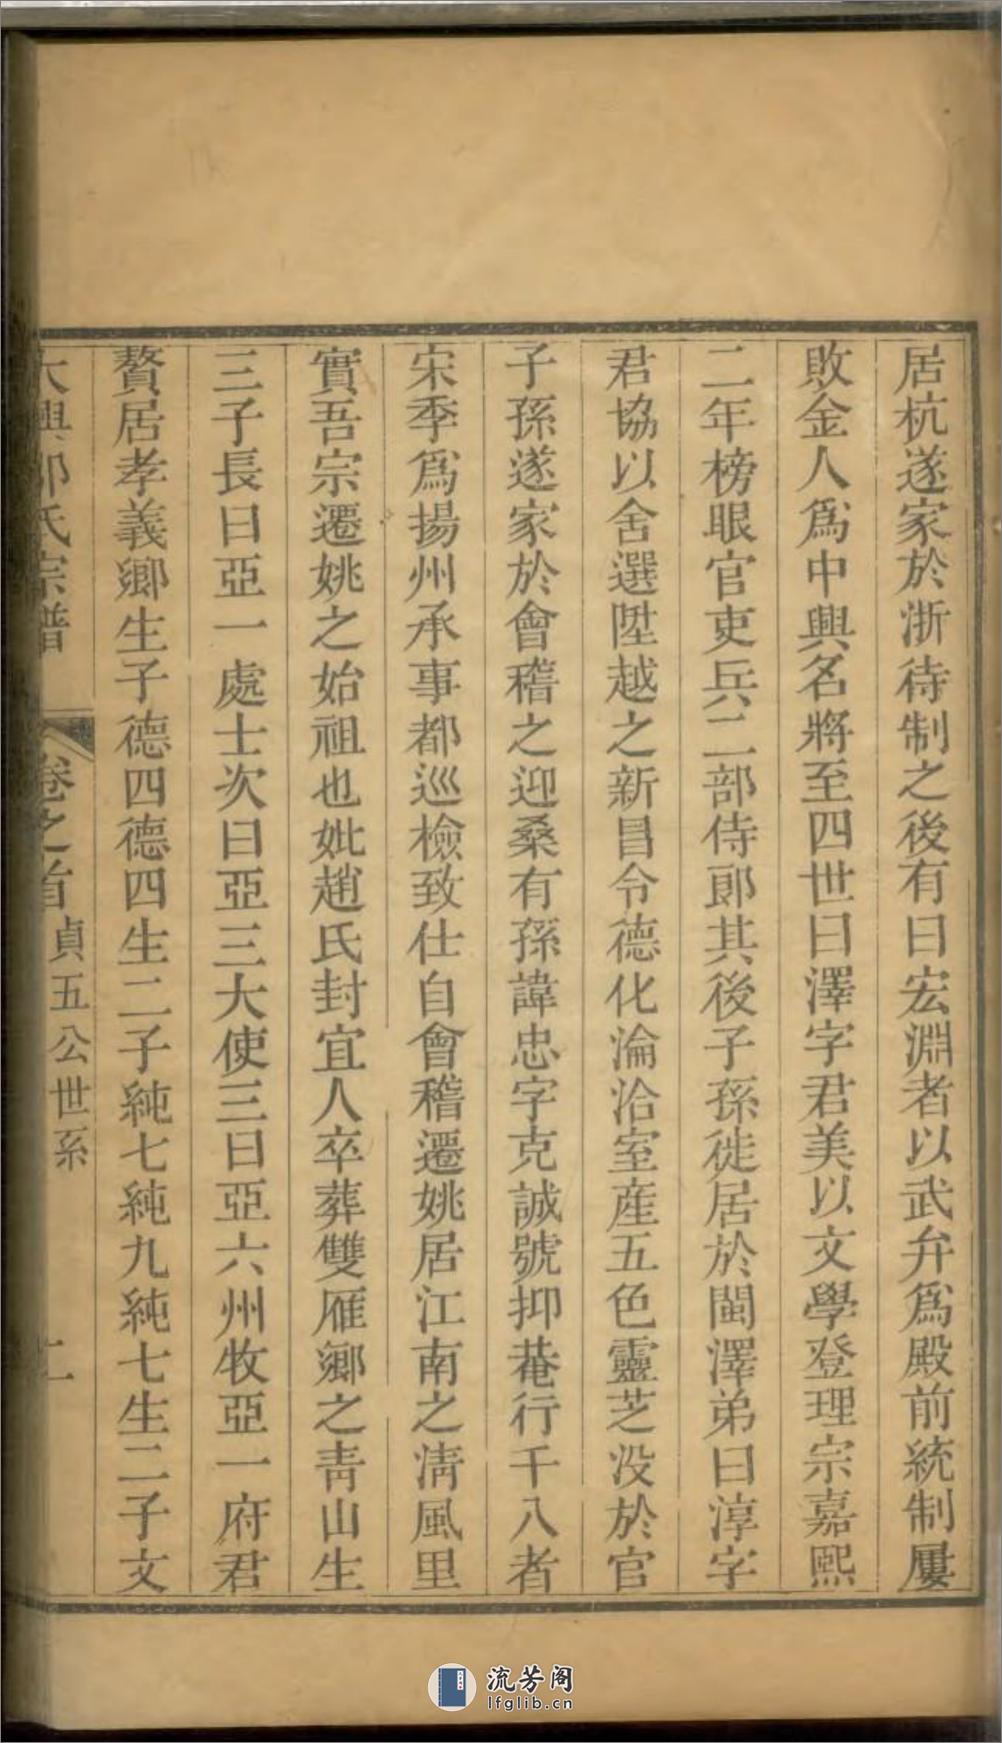 居杭遂家於浙待制之後有曰宏淵者以武弁爲殿前統制屢
敗金人爲中興名將至四世曰澤字君美以文學登理宗嘉熙
二年榜眼官吏兵二部侍郎其後子孫徙居於閩澤弟曰淳字
君協以舍選陞越之新昌令德化淪洽室産五色靈芝没於官
子孫遂家於會稽之迎桑有孫諱忠字克誠號抑菴行千八者
宋季爲揚州承事都巡檢致仕自會稽遷姚居江南之淸風里
實吾宗遷姚之始祖也妣趙氏封宜人卒葬雙雁鄉之靑山生
三子長曰亞一處士次曰亞三大使三曰亞六州牧亞一府君
贅居孝義鄉生子德四德四生二子純七純九純七生二子文
大興邵氏宗譜 卷之首 貞五公世系 二
流芳阁
lfglib.cn